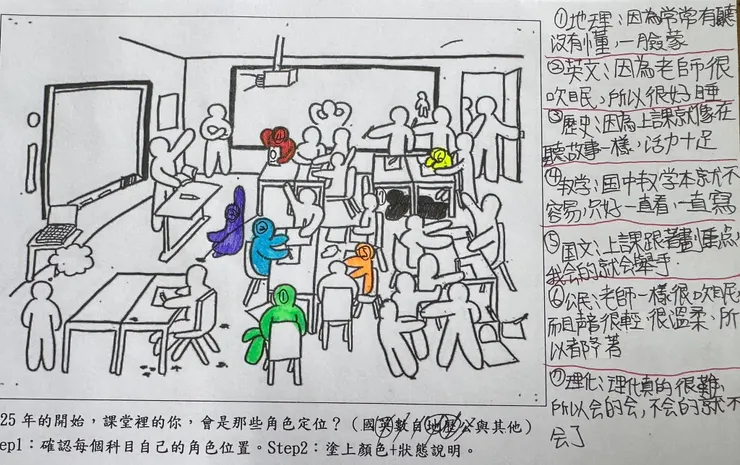 ①地理：因為常常有聽
沒有懂，一臉蒙
②英文：因為老師很
吹眠，所以很好睡
③歷史：因為上課就像在
聽故事一樣，活力十足
④数学：国中数学本就不
容易，只好一直看，一直寫
⑤国文：上課跟著畫重点，
我会的就会舉手
⑥公民：老師一樣很吹眠，
而且声音很輕很溫柔、所
以都趴著
⑦理化：理化真的很難，
所以会的会，不会的就不
会了
25 年的開始，課堂裡的你，會是那些角色定位？(國英數自地歷公與其他)
ep1：確認每個科目自己的角色位置。Step2：塗上顏色+狀態說明。